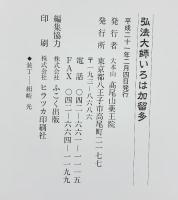 弘法大師いろは加留多
平成二十一年二月四日発行
発行者 大本山 髙尾山薬王院
発行所 東京都八王子市高尾町二一七七
〒一九三-八六八六
電話 〇四二-六六一-一一一五
FAX 〇四二-六六四-一一九九
編集協力 株式会社 ふこく出版
印刷 株式会社 ヒラツカ印刷社